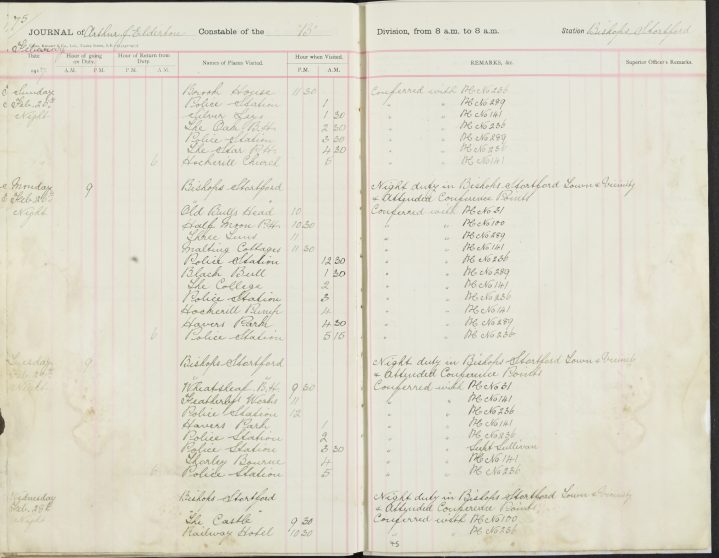 JOURNAL of Arthur J. Elderton Constable of the "B" Division, from 8 a.m. to 8 a.m. Station Bishops Stortford
Date Hour of going on Duty. Hour of Return from Duty. Names of Places Visited. Hour when Visited. REMARKS, &c. Superior Officer's Remarks.
A.M. P.M. A.M. P.M. P.M. A.M.
Sunday Brook House 11 30 Conferred with PC No 236
Feb. Police Station 1 " " PC No 289
Night Silver Leys 1 30 " " PC No 141
The Oak P.H. 2 30 " " PC No 236
Police Station 3 30 " " PC No 289
The Star P.H. 4 30 " " PC No 236
6 Hockerill Church 5 " " PC No 141
Monday 9 Bishops Stortford Night duty in Bishops Stortford Town & Vicinity
Feb. & Attended Conference Points
Night "Old Bulls Head" 10 Conferred with PC No 31
Half Moon P.H. 10 30 " " PC No 100
Three Tuns 11 " " PC No 289
Malting Cottages 11 30 " " PC No 141
Police Station 12 30 " " PC No 236
Black Bull 1 30 " " PC No 289
The College 2 " " PC No 141
Police Station 3 " " PC No 236
Hockerill Pump 4 " " PC No 141
Havers Park 4 30 " " PC No 289
6 Police Station 5 15 " " PC No 236
Tuesday 9 Bishops Stortford Night duty in Bishops Stortford Town & Vicinity
Feb. & Attended Conference Points
Night Wheatsheaf B.H. 9 30 Conferred with PC No 31
Featherby Works 11 " " PC No 141
Police Station 12 " " PC No 236
Havers Park 1 " " PC No 141
Police Station 2 " " PC No 236
Police Station 3 30 " " Supt Sullivan
Thorley Bourne 4 " " PC No 141
6 Police Station 5 " " PC No 236
Wednesday Bishops Stortford Night duty in Bishops Stortford Town & Vicinity
Feb. 28th & Attended Conference Points
Night "The Castle" 9 30 Conferred with PC No 100
Railway Hotel 10 30 " " PC No 236